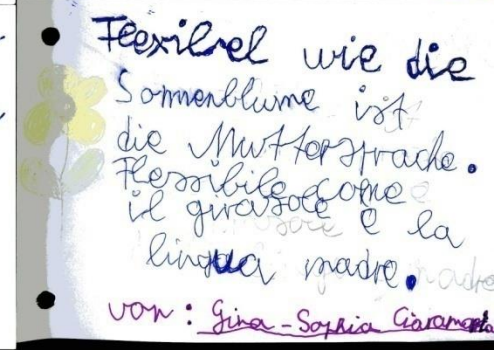 Flexibel wie die
Sonnenblume ist
die Muttersprache.
Flessibile come
il girasole è la
lingua madre.
von: Gina-Sophia